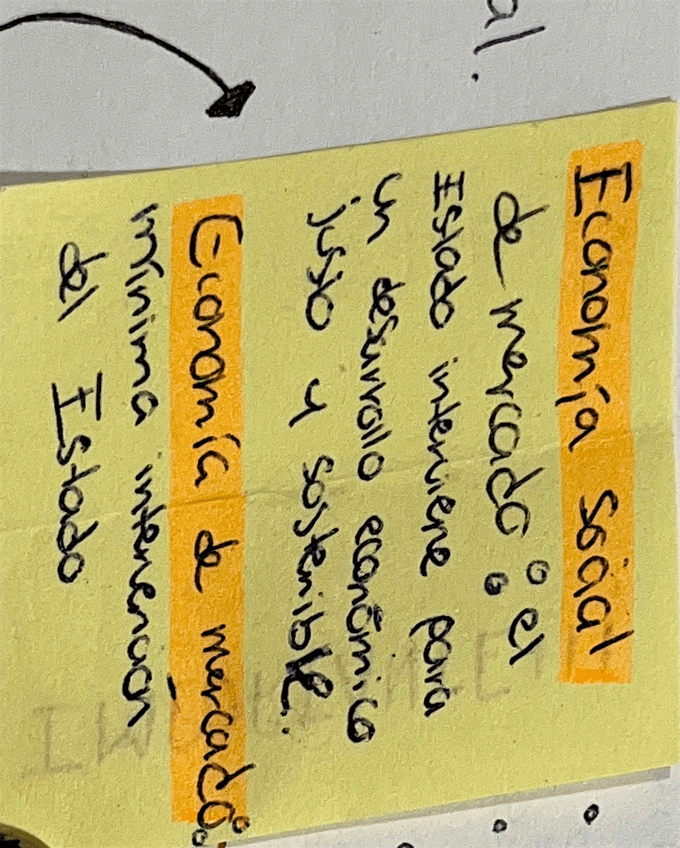 al.
Economía social
de mercado: el
Estado interviene para
un desarrollo económico
justo y sostenible.
Economía de mercado:
mínima intervención
del Estado